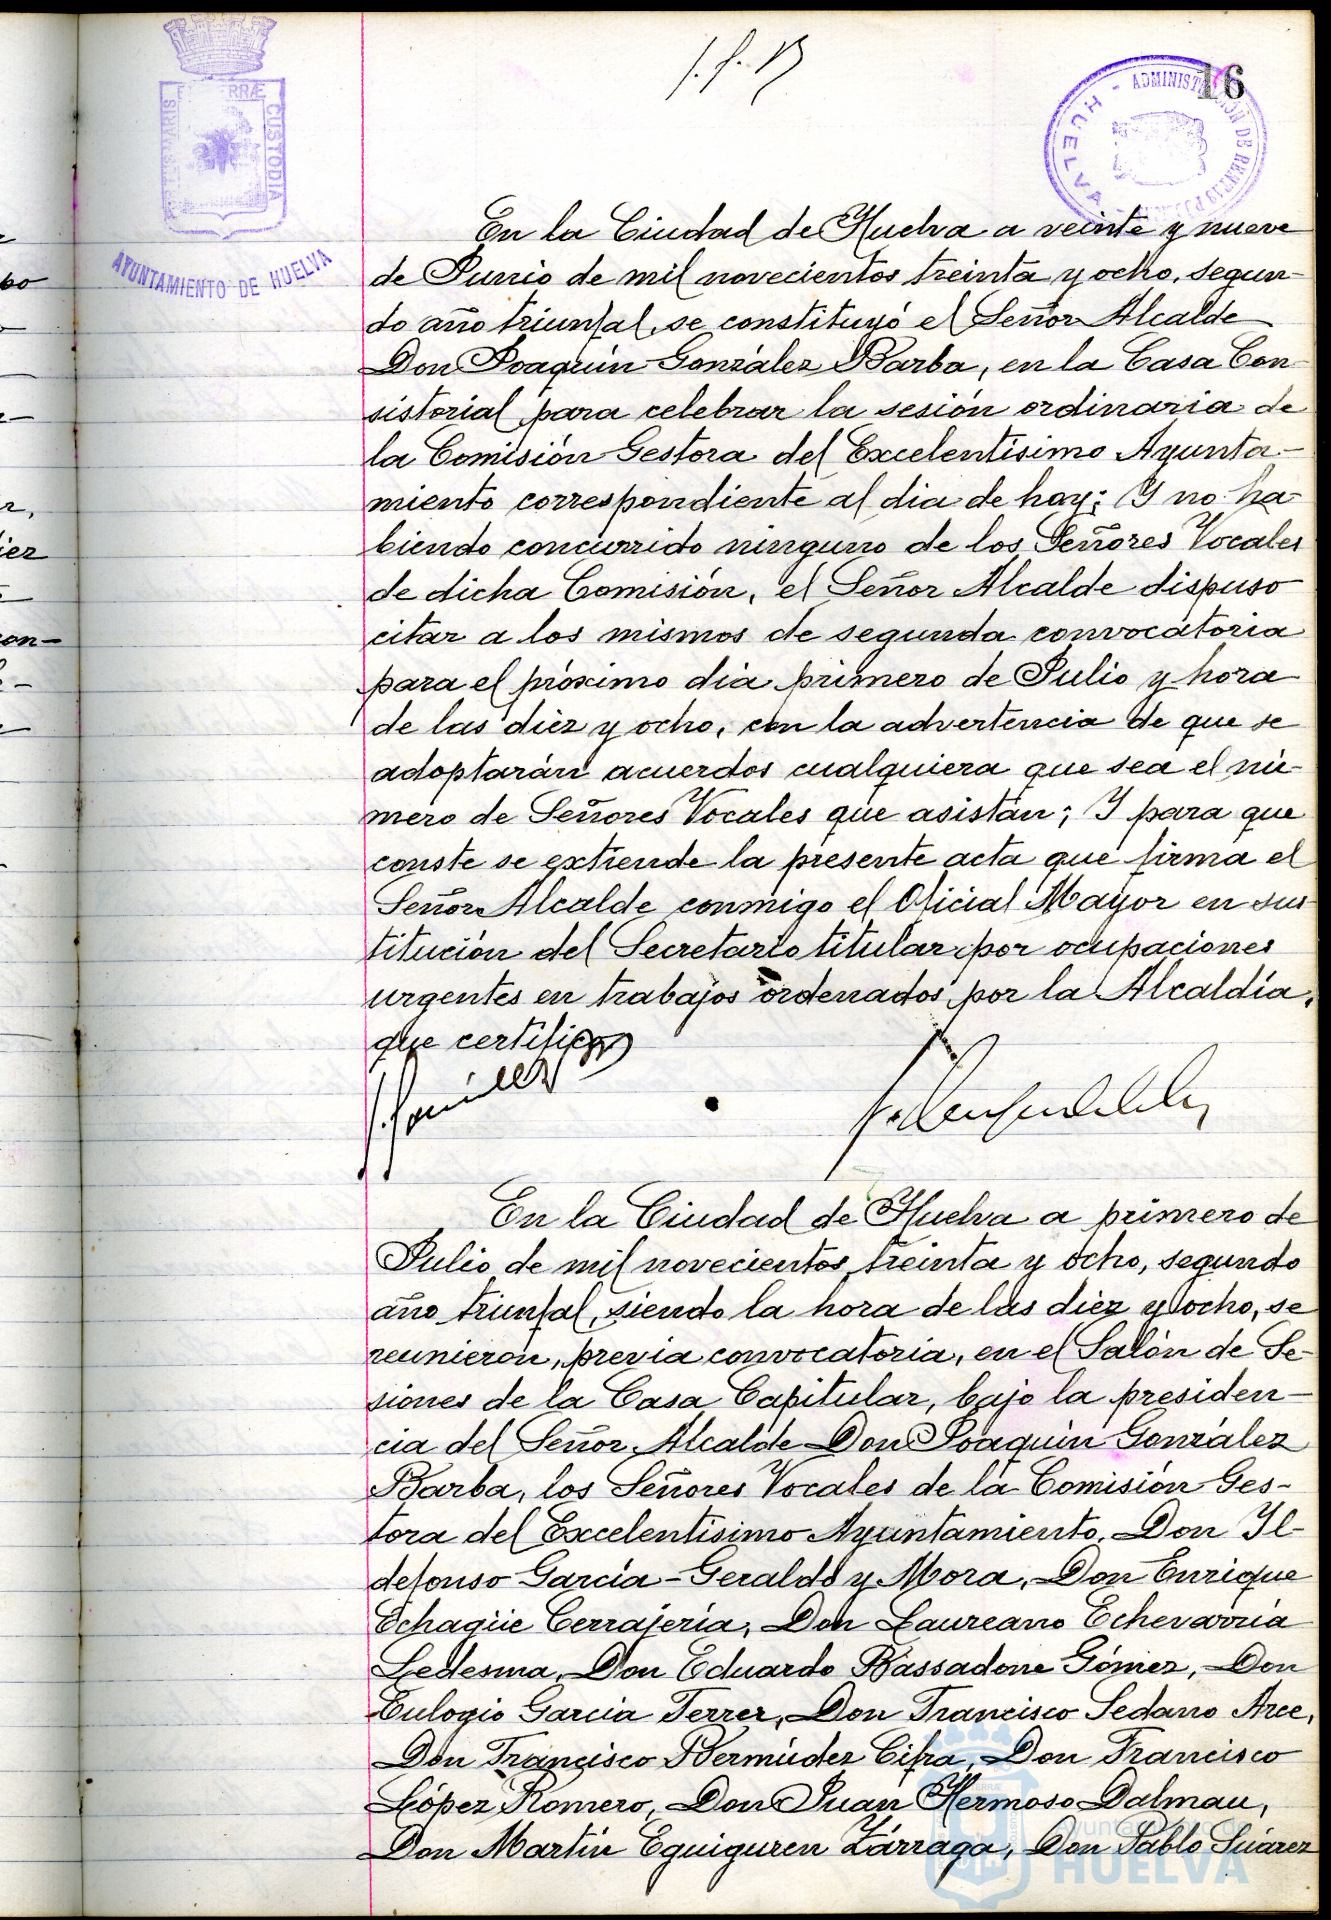 16
PORTUS MARIS ET TERRÆ CUSTODIA
AYUNTAMIENTO DE HUELVA
HUELVA
En la Ciudad de Huelva a veinte y nueve
de Junio de mil novecientos treinta y ocho, segun-
do año triunfal, se constituyó el Señor Alcalde
Don Joaquín González Barba, en la Casa Con-
sistorial para celebrar la sesión ordinaria de
la Comisión Gestora del Excelentísimo Ayunta-
miento correspondiente al dia de hoy; Y no ha-
biendo concurrido ninguno de los Señores Vocales
de dicha Comisión, el Señor Alcalde dispuso
citar a los mismos de segunda convocatoria
para el próximo dia primero de Julio y hora
de las diez y ocho, con la advertencia de que se
adoptarán acuerdos cualquiera que sea el nú-
mero de Señores Vocales que asistan; Y para que
conste se extiende la presente acta que firma el
Señor Alcalde conmigo el Oficial Mayor en sus-
titución del Secretario titular por ocupaciones
urgentes en trabajos ordenados por la Alcaldía,
que certifico
En la Ciudad de Huelva a primero de
Julio de mil novecientos treinta y ocho, segundo
año triunfal, siendo la hora de las diez y ocho, se
reunieron, previa convocatoria, en el Salón de Se-
siones de la Casa Capitular, bajo la presiden-
cia del Señor Alcalde Don Joaquín González
Barba, los Señores Vocales de la Comisión Ges-
tora del Excelentísimo Ayuntamiento, Don Il-
defonso García-Geraldo y Mora, Don Enrique
Echagüe Cerrajería, Don Laureano Echevarría
Ledesma, Don Eduardo Bassadone Gómez, Don
Eulogio Garcia Ferrer, Don Francisco Sedano Arce,
Don Francisco Bermúdez Cifra, Don Francisco
López Romero, Don Juan Hermoso Dalmau,
Don Martín Eguiguren Zárraga, Don Pablo Suárez
Ayuntamiento de
HUELVA